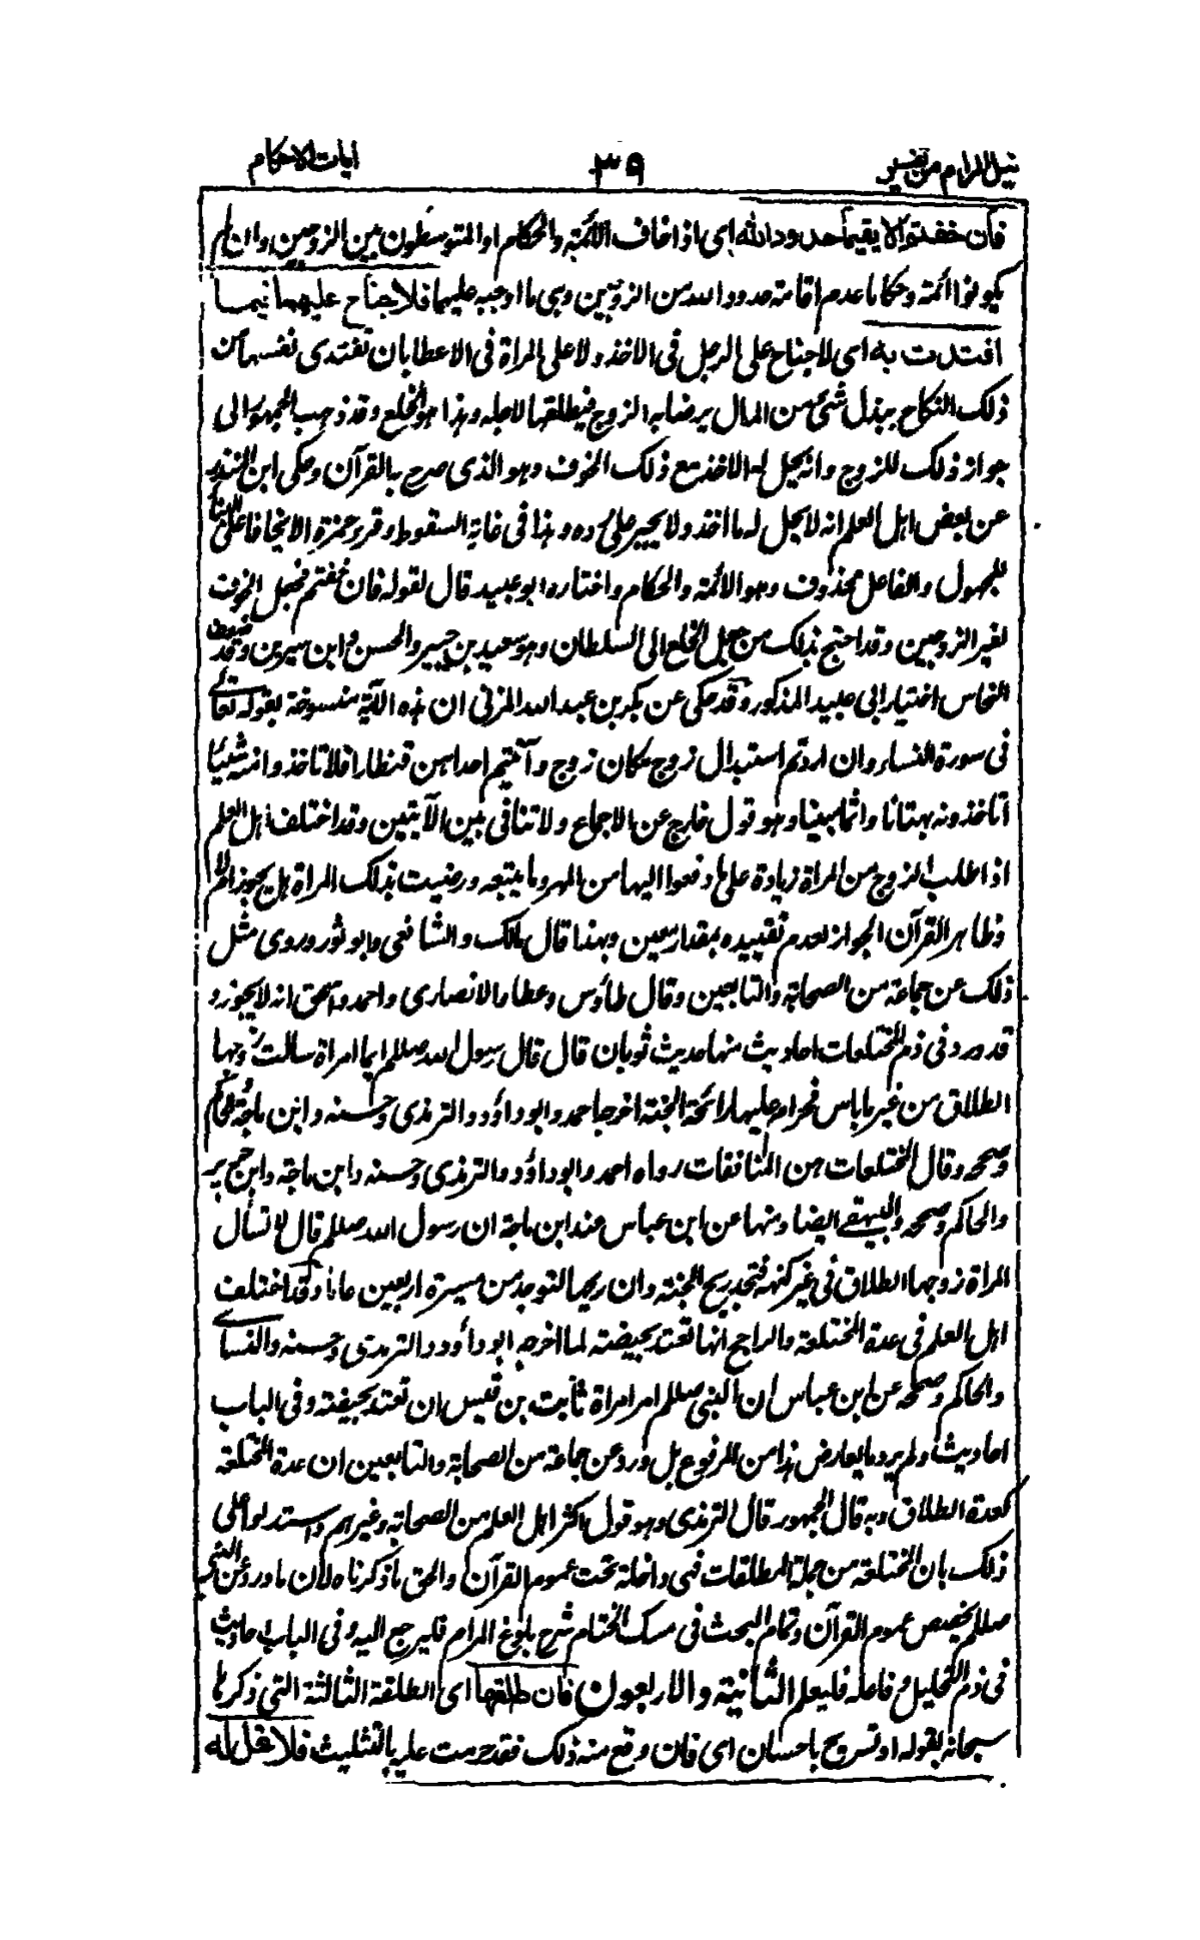 نيل المرام من تفسير ٣٩ ايات الاحكام
فان خفتم الا يقيما حدود الله اى اذا خاف الائمة والحكام او المتوسطون بين الزوجين وان لم
يكونوا ائمة وحكاما عدم اقامة حدود الله من الزوجين وهى ما اوجبه عليهما فلا جناح عليهما فيما
افتدت به اى لا جناح على الرجل فى الاخذ ولا على المراة فى الاعطا بان تفتدى نفسها من
ذلك النكاح ببذل شئ من المال يرضا به الزوج فيطلقها لاجله وهذا هو الخلع وقد ذهب الجمهور الى
جواز ذلك للزوج وانه يحل له الاخذ مع ذلك الخوف وهو الذى صرح به القرآن وحكى ابن المنذر
عن بعض اهل العلم انه لا يحل له ما اخذ ولا يجبر على رده وهذا فى غاية السقوط وقرء حمزة الا يخافا على البناء
للمجهول والفاعل محذوف وهو الائمة والحكام واختاره ابو عبيد قال لقوله فان خفتم فجعل الخوف
لغير الزوجين وقد احتج بذلك من جعل الخلع الى السلطان وهو سعيد بن جبير والحسن وابن سيرين وقد ضعف
النحاس اختيار ابى عبيد المذكور وقد حكى عن بكر بن عبد الله المزنى ان هذه الآية منسوخة بقوله تعالے
فى سورة النساء وان اردتم استبدال زوج مكان زوج وآتيتم احداهن قنطارا فلا تاخذوا منه شيئا
اتاخذونه بهتانا واثما مبينا وهو قول خارج عن الاجماع ولا تنافى بين الآيتين وقد اختلف اهل العلم
اذا طلب الزوج من المراة زيادة على ما دفعوا اليها من المهر وما يتبعه ورضيت بذلك المراة هل يجوز ام لا
وظاهر القرآن الجواز لعدم تقييده بمقدار معين وبهذا قال مالك والشافعى وابو ثور وروى مثل
ذلك عن جماعة من الصحابة والتابعين وقال طاؤس وعطا والانصارى واحمد واسحق انه لا يجوز و
قد ورد فى ذم المختلعات احاديث منها حديث ثوبان قال قال رسول الله صللم ايما امراة سالت زوجها
الطلاق من غير ما باس فحرام عليها رائحة الجنة اخرجه احمد وابو داؤد والترمذى وحسنه وابن ماجة والحاكم
وصححه وقال المختلعات هن المنافقات رواه احمد وابو داؤد والترمذى وحسنه وابن ماجة وابن جرير
والحاكم وصححه والبيهقے ايضا ومنها عن ابن عباس عند ابن ماجة ان رسول الله صللم قال لا تسأل
المراة زوجها الطلاق فى غير كنهه فتجد ريح الجنة وان ريحها لتوجد من مسيرة اربعين عاما وقد اختلف
اهل العلم فى عدة المختلعة والراجح انها تعتد بحيضة لما اخرجه ابو داؤد والترمذى وحسنه والنسائے
والحاكم وصححه عن ابن عباس ان النبى صللم امر امراة ثابت بن قيس ان تعتد بحيضة وفى الباب
احاديث ولم يرد ما يعارض هذا من المرفوع بل ورد عن جماعة من الصحابة والتابعين ان عدة المختلعة
كعدة الطلاق وبه قال الجمهور قال الترمذى وهو قول اكثر اهل العلم من الصحابة وغيرهم واستدلوا على
ذلك بان المختلعة من جملة المطلقات فهى داخلة تحت عموم القرآن والحق ما ذكرناه لان ما ورد عن النبى
صللم يخصص عموم القرآن وتمام البحث فى مسك الختام شرح بلوغ المرام فليرجع اليه وفى الباب احاديث
فى ذم التحليل وفاعله فليعلم الثانية والاربعون فان طلقها اى الطلقة الثالثة التى ذكرها
سبحانه بقوله او تسريح باحسان اى فان وقع منه ذلك فقد حرمت عليه بالتثليث فلا تحل له